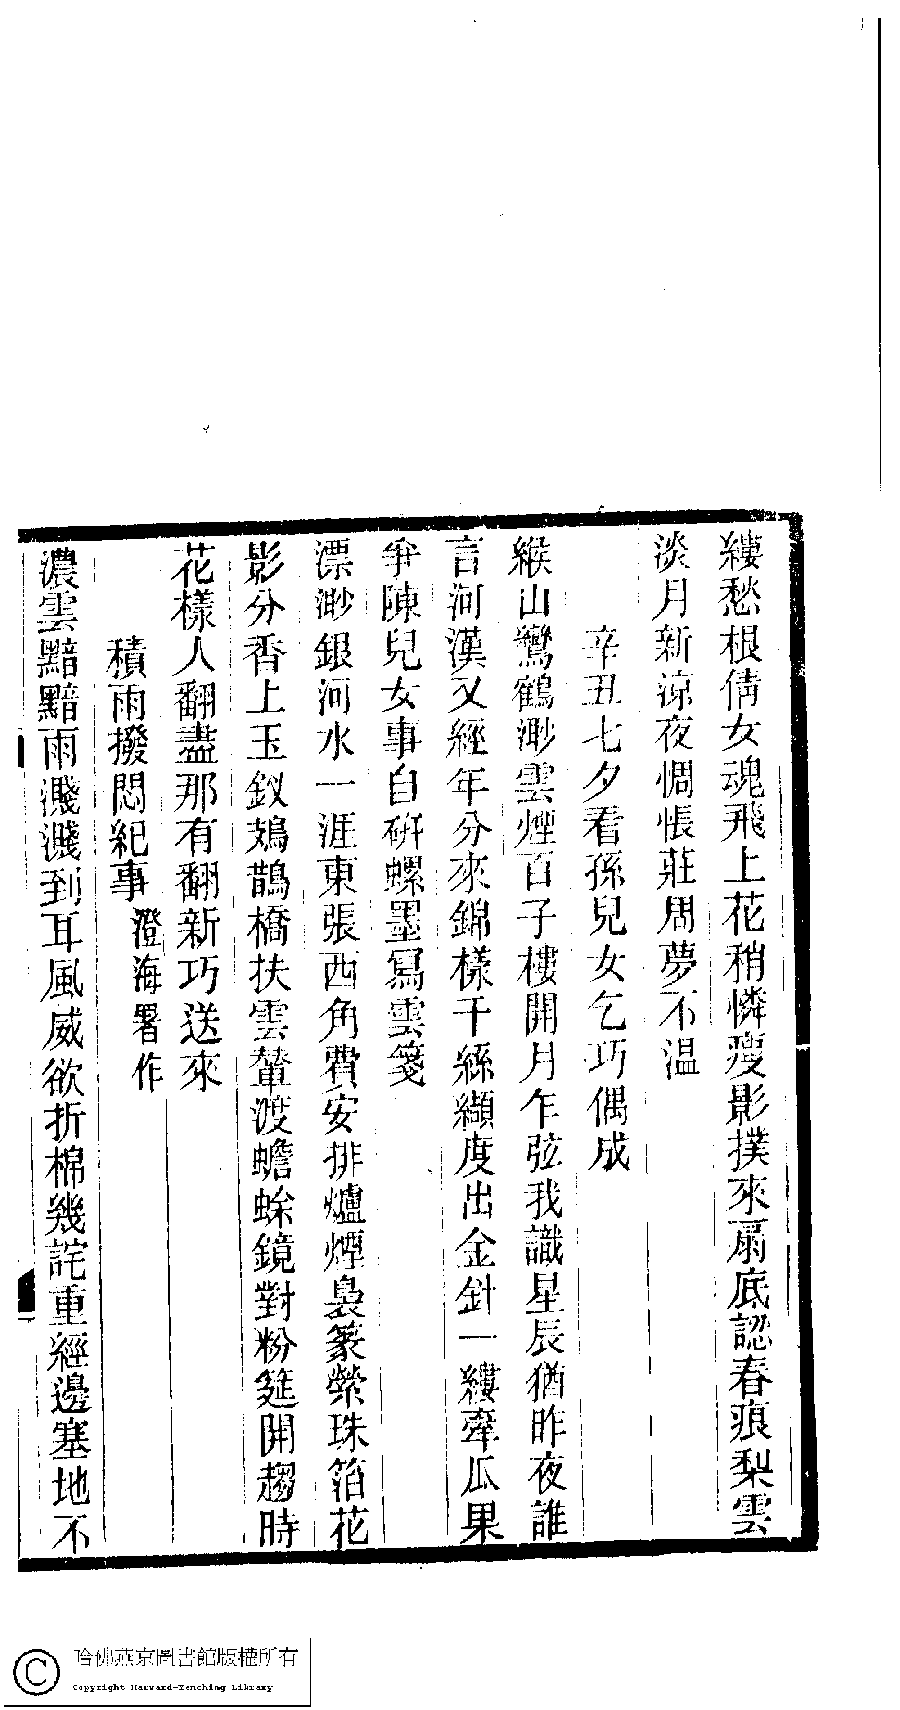 縷愁根倩女魂飛上花稍憐瘦影撲來扇底認春痕梨雲
淡月新涼夜惆悵莊周夢不温
辛丑七夕看孫兒女乞巧偶成
緱山鸞鶴渺雲煙百子樓開月乍弦我識星辰猶昨夜誰
言河漢又經年分來錦樣千絲纈度出金針一縷牽瓜果
爭陳兒女事自硏螺墨寫雲箋
漂渺銀河水一涯東張西角費安排爐煙裊篆縈珠箔花
影分香上玉釵烏鵲橋扶雲輦渡蟾蜍鏡對粉筵開趨時
花樣人翻盡那有翻新巧送來
積雨撥悶紀事 澄海署作
濃雲黯黯雨濺濺到耳風威欲折棉幾詫重經邊塞地不
哈佛燕京圖書館版權所有
Copyright Harvard-Yenching Library